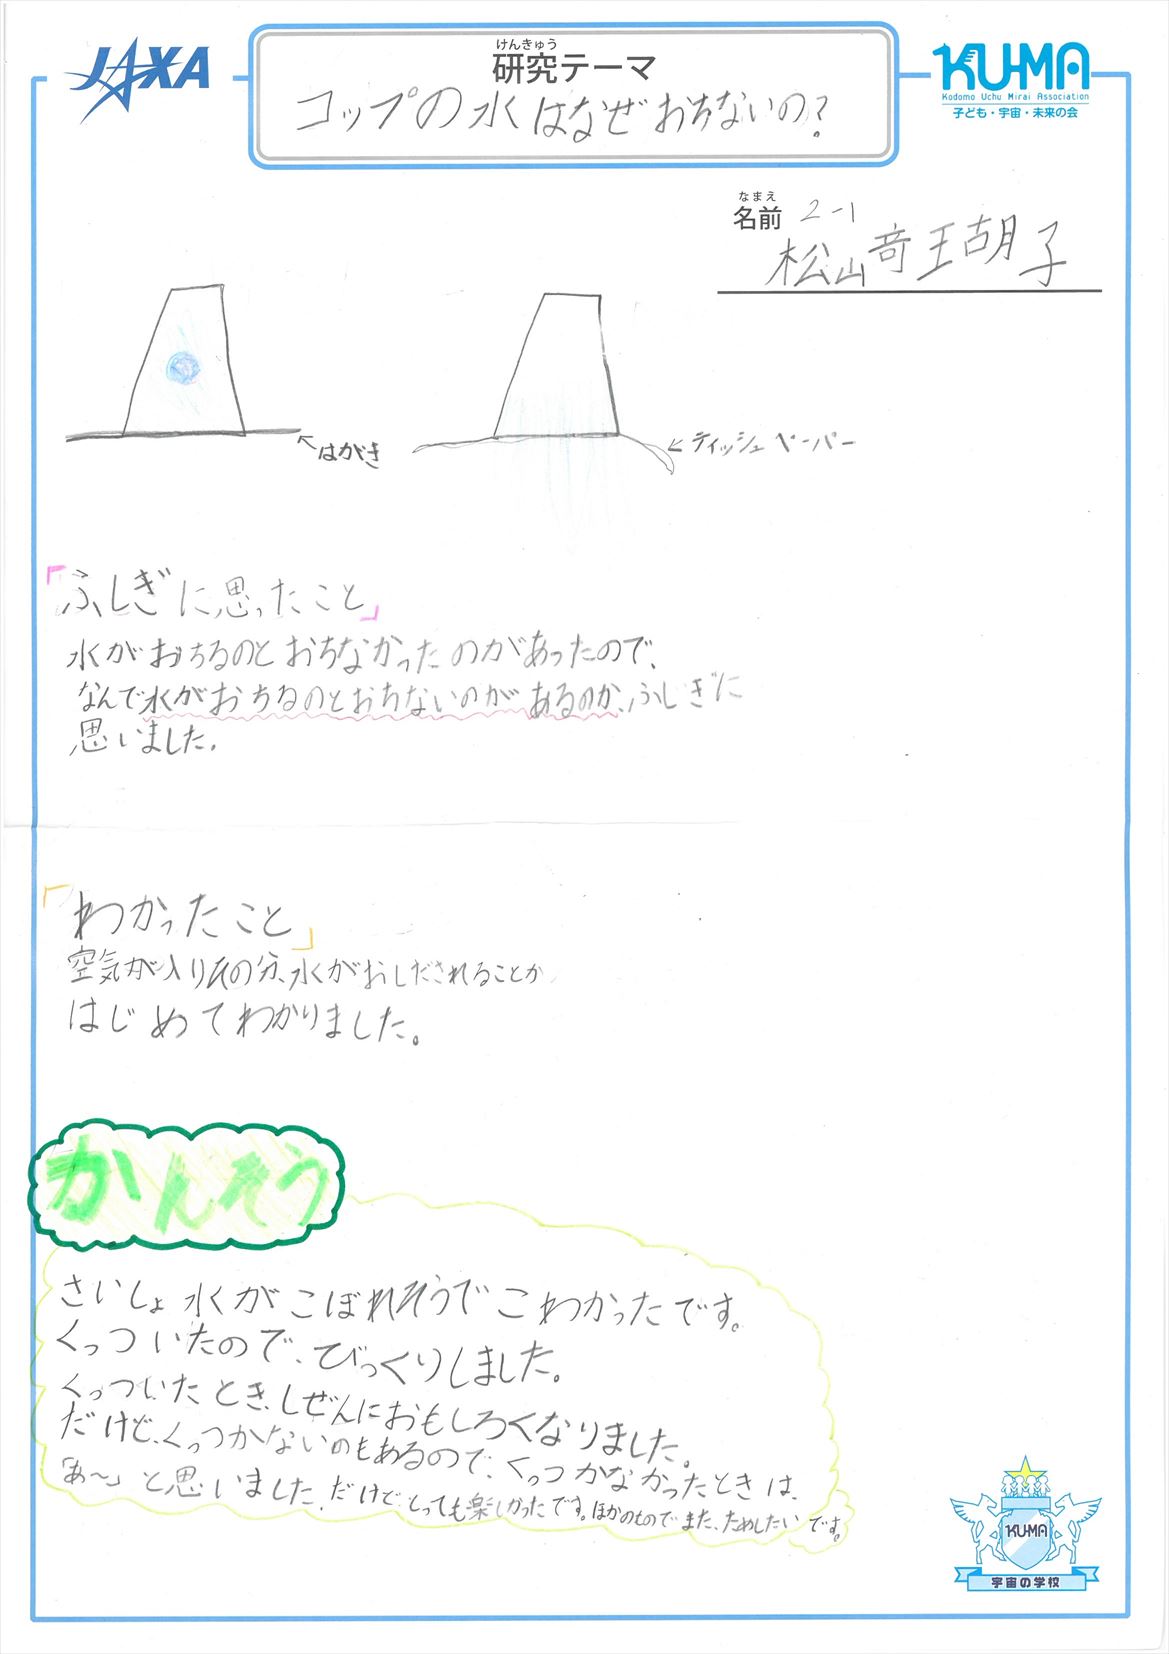 JAXA
けんきゅう
研究テーマ
コップの水はなぜおちないの?
KU-MA
Kodomo Uchu Mirai Association
子ども・宇宙・未来の会
なまえ
名前 2-1
松山奇王胡子
←はがき
←ティッシュペーパー
「ふしぎに思ったこと」
水がおちるのとおちなかったのがあったので、
なんで水がおちるのとおちないのがあるのか、ふしぎに
思いました。
「わかったこと」
空気が入りその分、水がおしだされることが
はじめてわかりました。
かんそう
さいしょ水がこぼれそうでこわかったです。
くっついたので、びっくりしました。
くっついたとき、しぜんにおもしろくなりました。
だけど、くっつかないのもあるので、くっつかなかったときは、
「あ〜」と思いました。だけど、とっても楽しかったです。ほかのものでまた、ためしたいです。
KU-MA
宇宙の学校